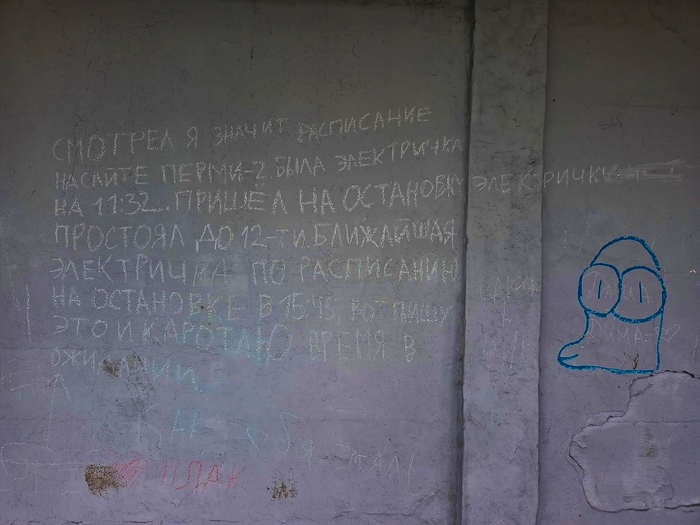 СМОТРЕЛ Я ЗНАЧИТ РАСПИСАНИЕ
НАСАЙТЕ ПЕРМИ-2. БЫЛА ЭЛЕКТРИЧКА
НА 11:32. ПРИШЕЛ НА ОСТАНОВКУ ЭЛЕКТРИЧКИ
ПРОСТОЯЛ ДО 12-ТИ. БЛИЖАЙШАЯ
ЭЛЕКТРИЧКА ПО РАСПИСАНИЮ
НА ОСТАНОВКЕ В 15:45. ВОТ ПИШУ
ЭТО И КАРОТАЮ ВРЕМЯ В
ОЖИДАНИИ.
КАК
ПЛАК